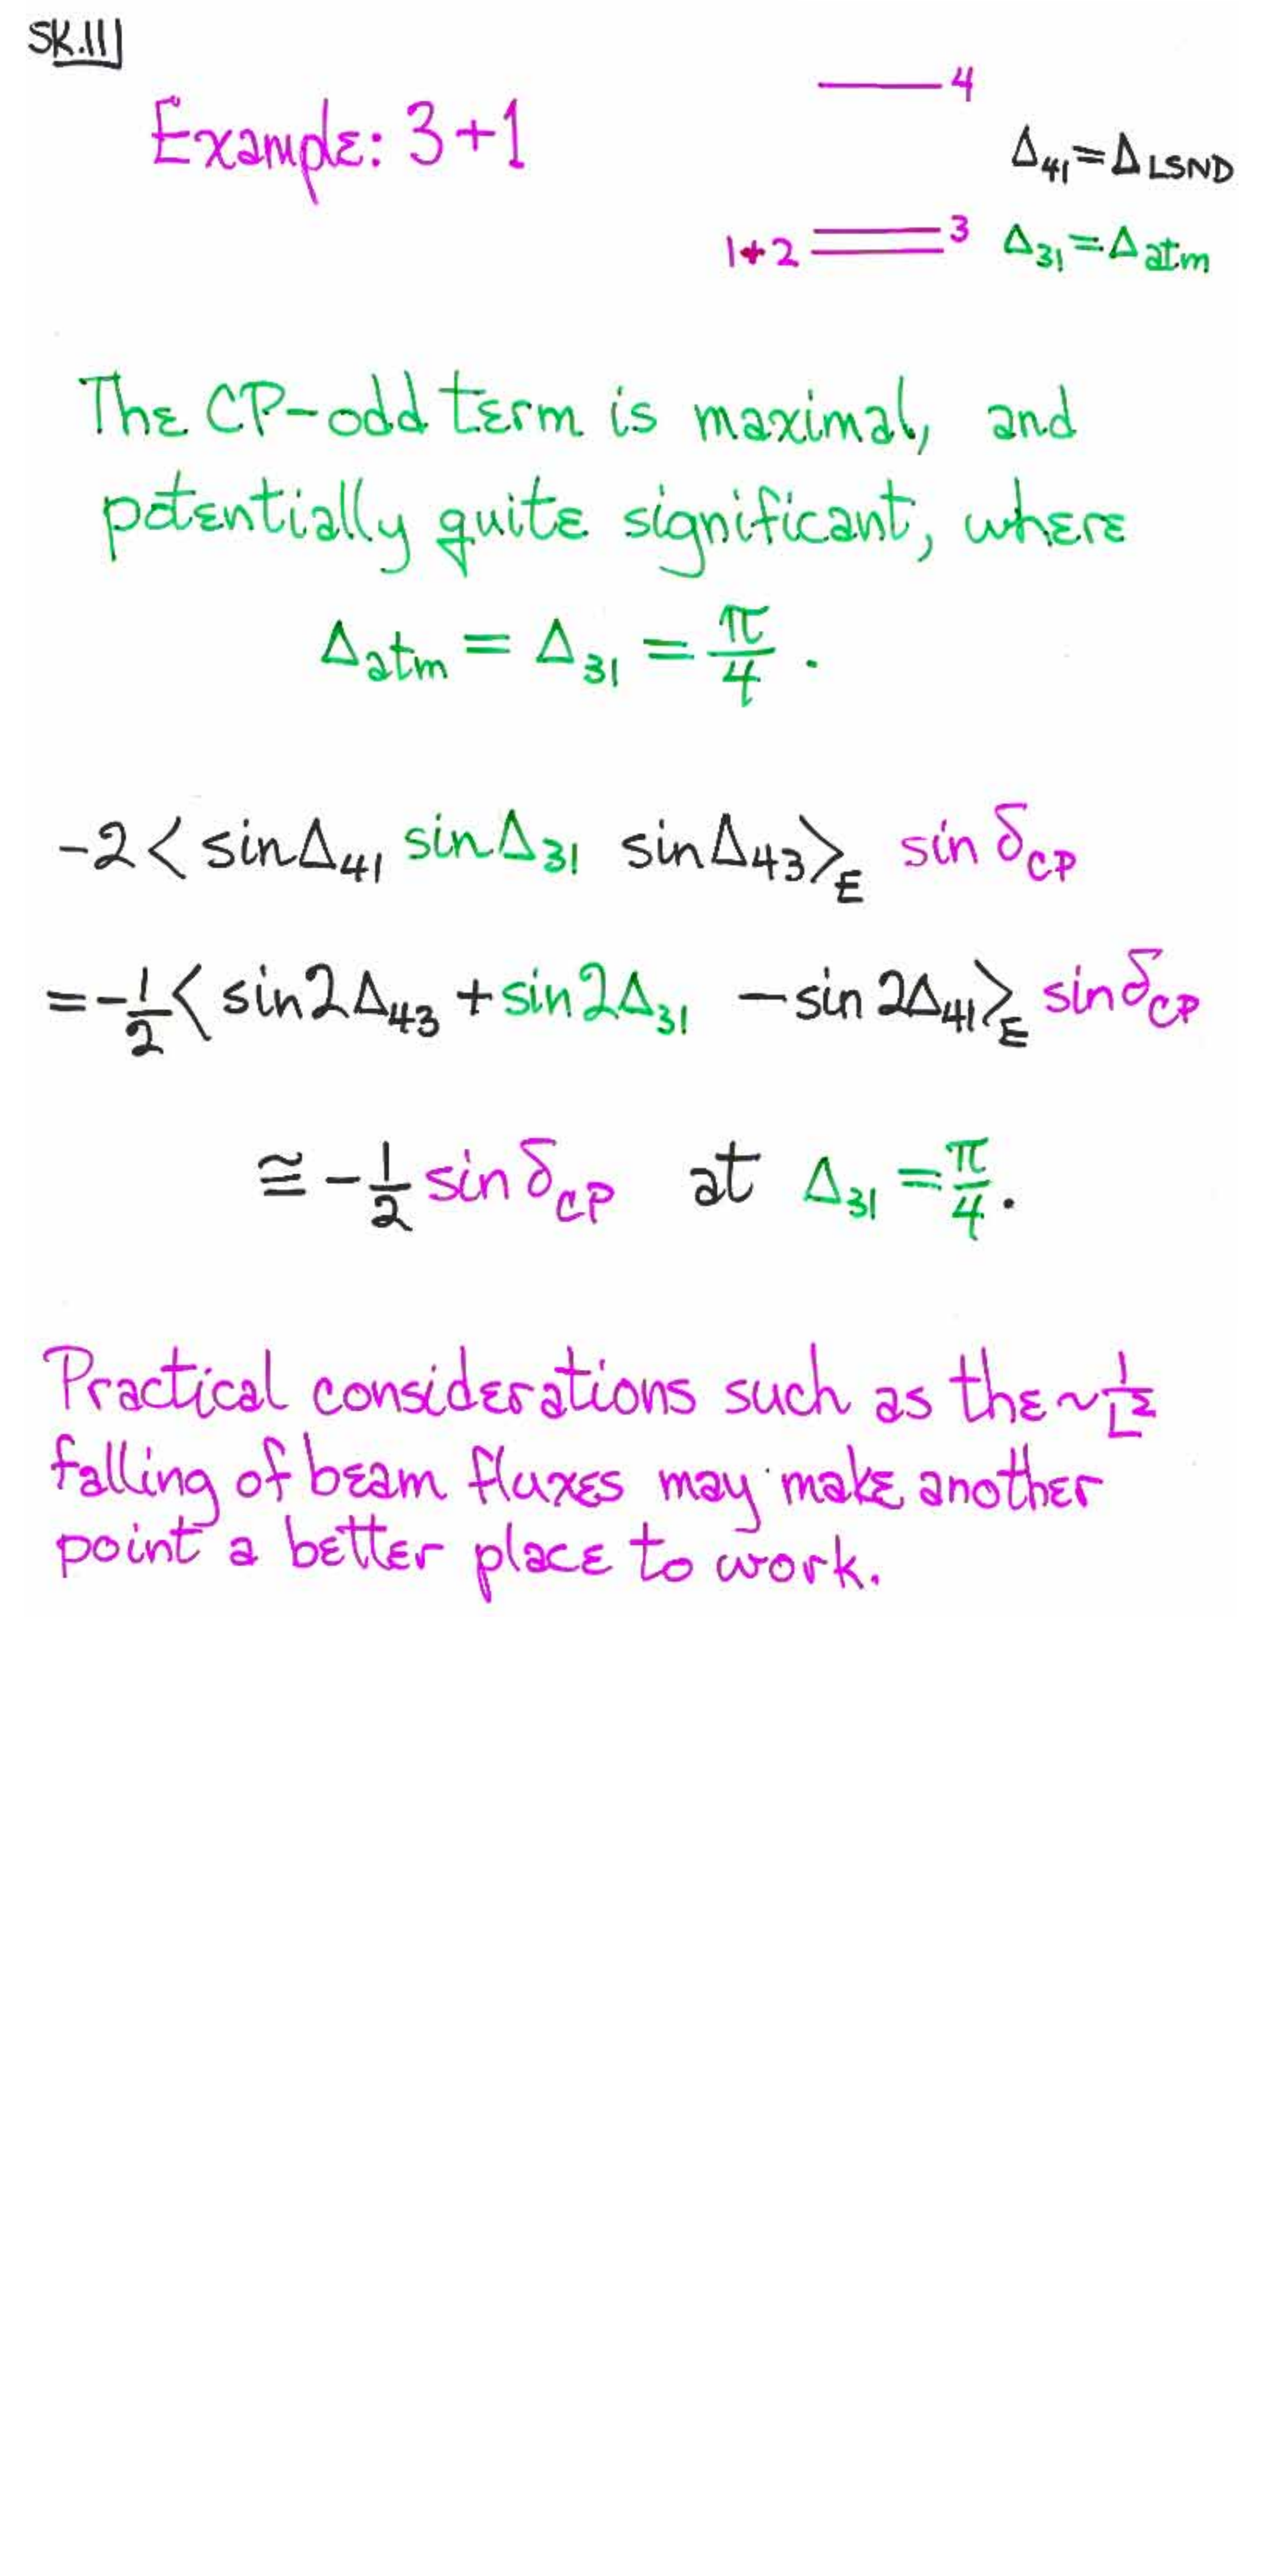 SK.11
Example: 3+1
4
Δ₄₁=Δ LSND
1+2 3 Δ₃₁=Δ atm
The CP-odd term is maximal, and
potentially quite significant, where
Δ atm = Δ₃₁ = π/4 .
-2< sinΔ₄₁ sinΔ₃₁ sinΔ₄₃>_E sin δ_CP
=-1/2< sin2Δ₄₃ +sin2Δ₃₁ -sin 2Δ₄₁>_E sinδ_CP
≅ -1/2 sin δ_CP at Δ₃₁ = π/4.
Practical considerations such as the ~ 1/L²
falling of beam fluxes may make another
point a better place to work.